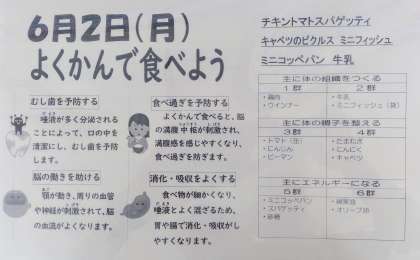 6月2日(月)
よくかんで食べよう
むし歯を予防する
唾液が多く分泌される
ことによって、口の中を
清潔にし、むし歯を予防
します。
食べ過ぎを予防する
よくかんで食べると、脳
の満腹中枢が刺激されて、
満腹感を感じやすくなり、
食べ過ぎを防ぎます。
脳の働きを助ける
顎が動き、周りの血管
や神経が刺激されて、脳
の血流がよくなります。
消化・吸収をよくする
食べ物が細かくなり、
唾液とよく混ざるため、
胃や腸で消化・吸収がし
やすくなります。
チキントマトスパゲッティ
キャベツのピクルス ミニフィッシュ
ミニコッペパン 牛乳
主に体の組織をつくる
1群 2群
・鶏肉 ・牛乳
・ウインナー ・ミニフィッシュ(袋)
主に体の調子を整える
3群 4群
・トマト(缶) ・たまねぎ
・にんじん ・にんにく
・ピーマン ・キャベツ
主にエネルギーになる
5群 6群
・ミニコッペパン
・スパゲティ ・オリーブ油
・砂糖